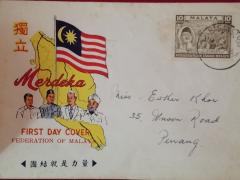 獨立
Merdeka
FIRST DAY COVER
FEDERATION OF MALAYA
團結就是力量
10 MALAYA 10
Miss Esther Khor
35 Union Road
Penang